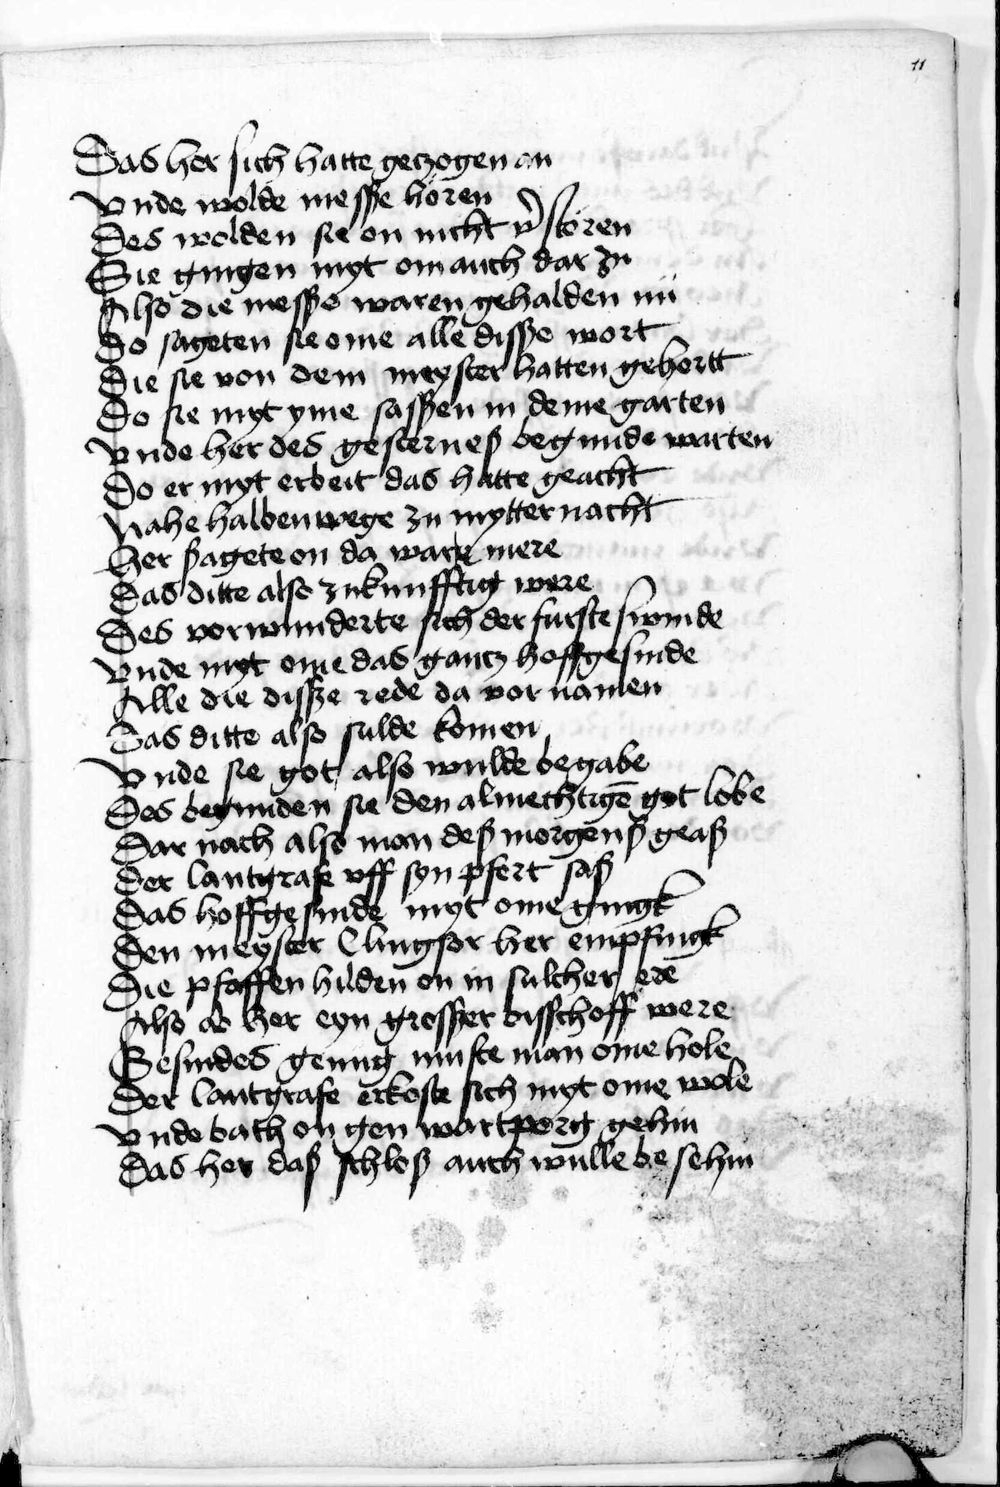 11
Das her sich hatte geczogen an
Vnde wolde messze horen
Des wolden sie on nicht vͬstoren
Sie gingen myt om auch dar zu
Also die messze waren gehalden nu
Do sageten sie ome alle dissze wort
Die sie von dem meyster hatten gehortt
Do sie myt yme saszen in deme garten
Vnde her des gesterneß begunde warten
Do er myt erbeit das hatte geacht
Nahe halbenwege zu mytternacht
Her sagete on da ware mere
Das ditte also zukunfftig were
Des vorwunderte sich der furste swinde
Vnde myt ome das gantz hoffgesinde
Alle die dissze rede da vornamen
Das ditte also sulde komen
Vnde sie got also wulde begabe
Des begunden sie den almechtigē got lobe
Dar nach also man deß morgenß geaß
Der lantgrafe vff syn pfert saß
Das hoffgesinde myt ome gingk
Den meyster Clingsor her empfingk
Die pfaffen hildēn on in sulcher ere
Also ab her eyn grosszer bisschoff were
Gesindes genug muste man ome hole
Der lantgrafe erkoste sich myt ome wole
Vnde bath on gen wartperg gehin
Das her daß schloß auch wulle besehin